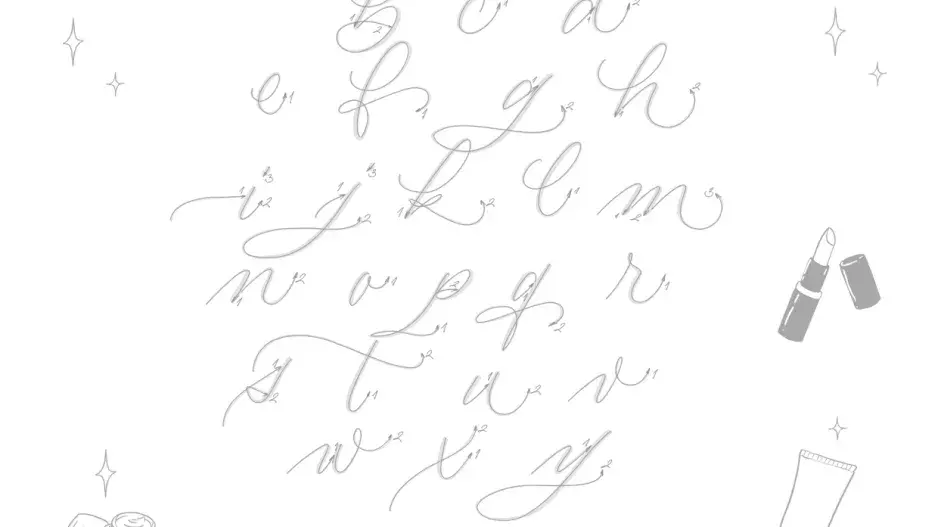 b c d
e f g h
i j k l m
n o p q r
s t u v
w x y